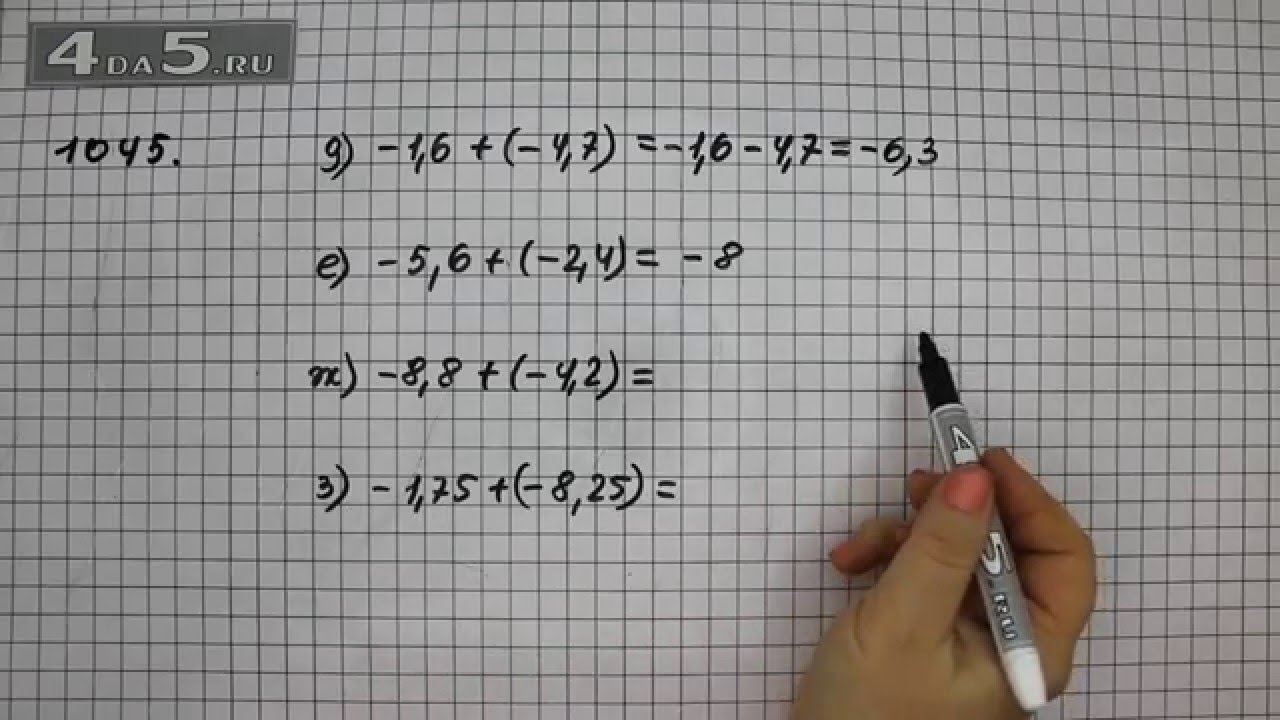 4DA5.RU
1045. д) -1,6 + (-4,7) = -1,6 - 4,7 = -6,3
е) -5,6 + (-2,4) = -8
ж) -8,8 + (-4,2) =
з) -1,75 + (-8,25) =
4 5.RU